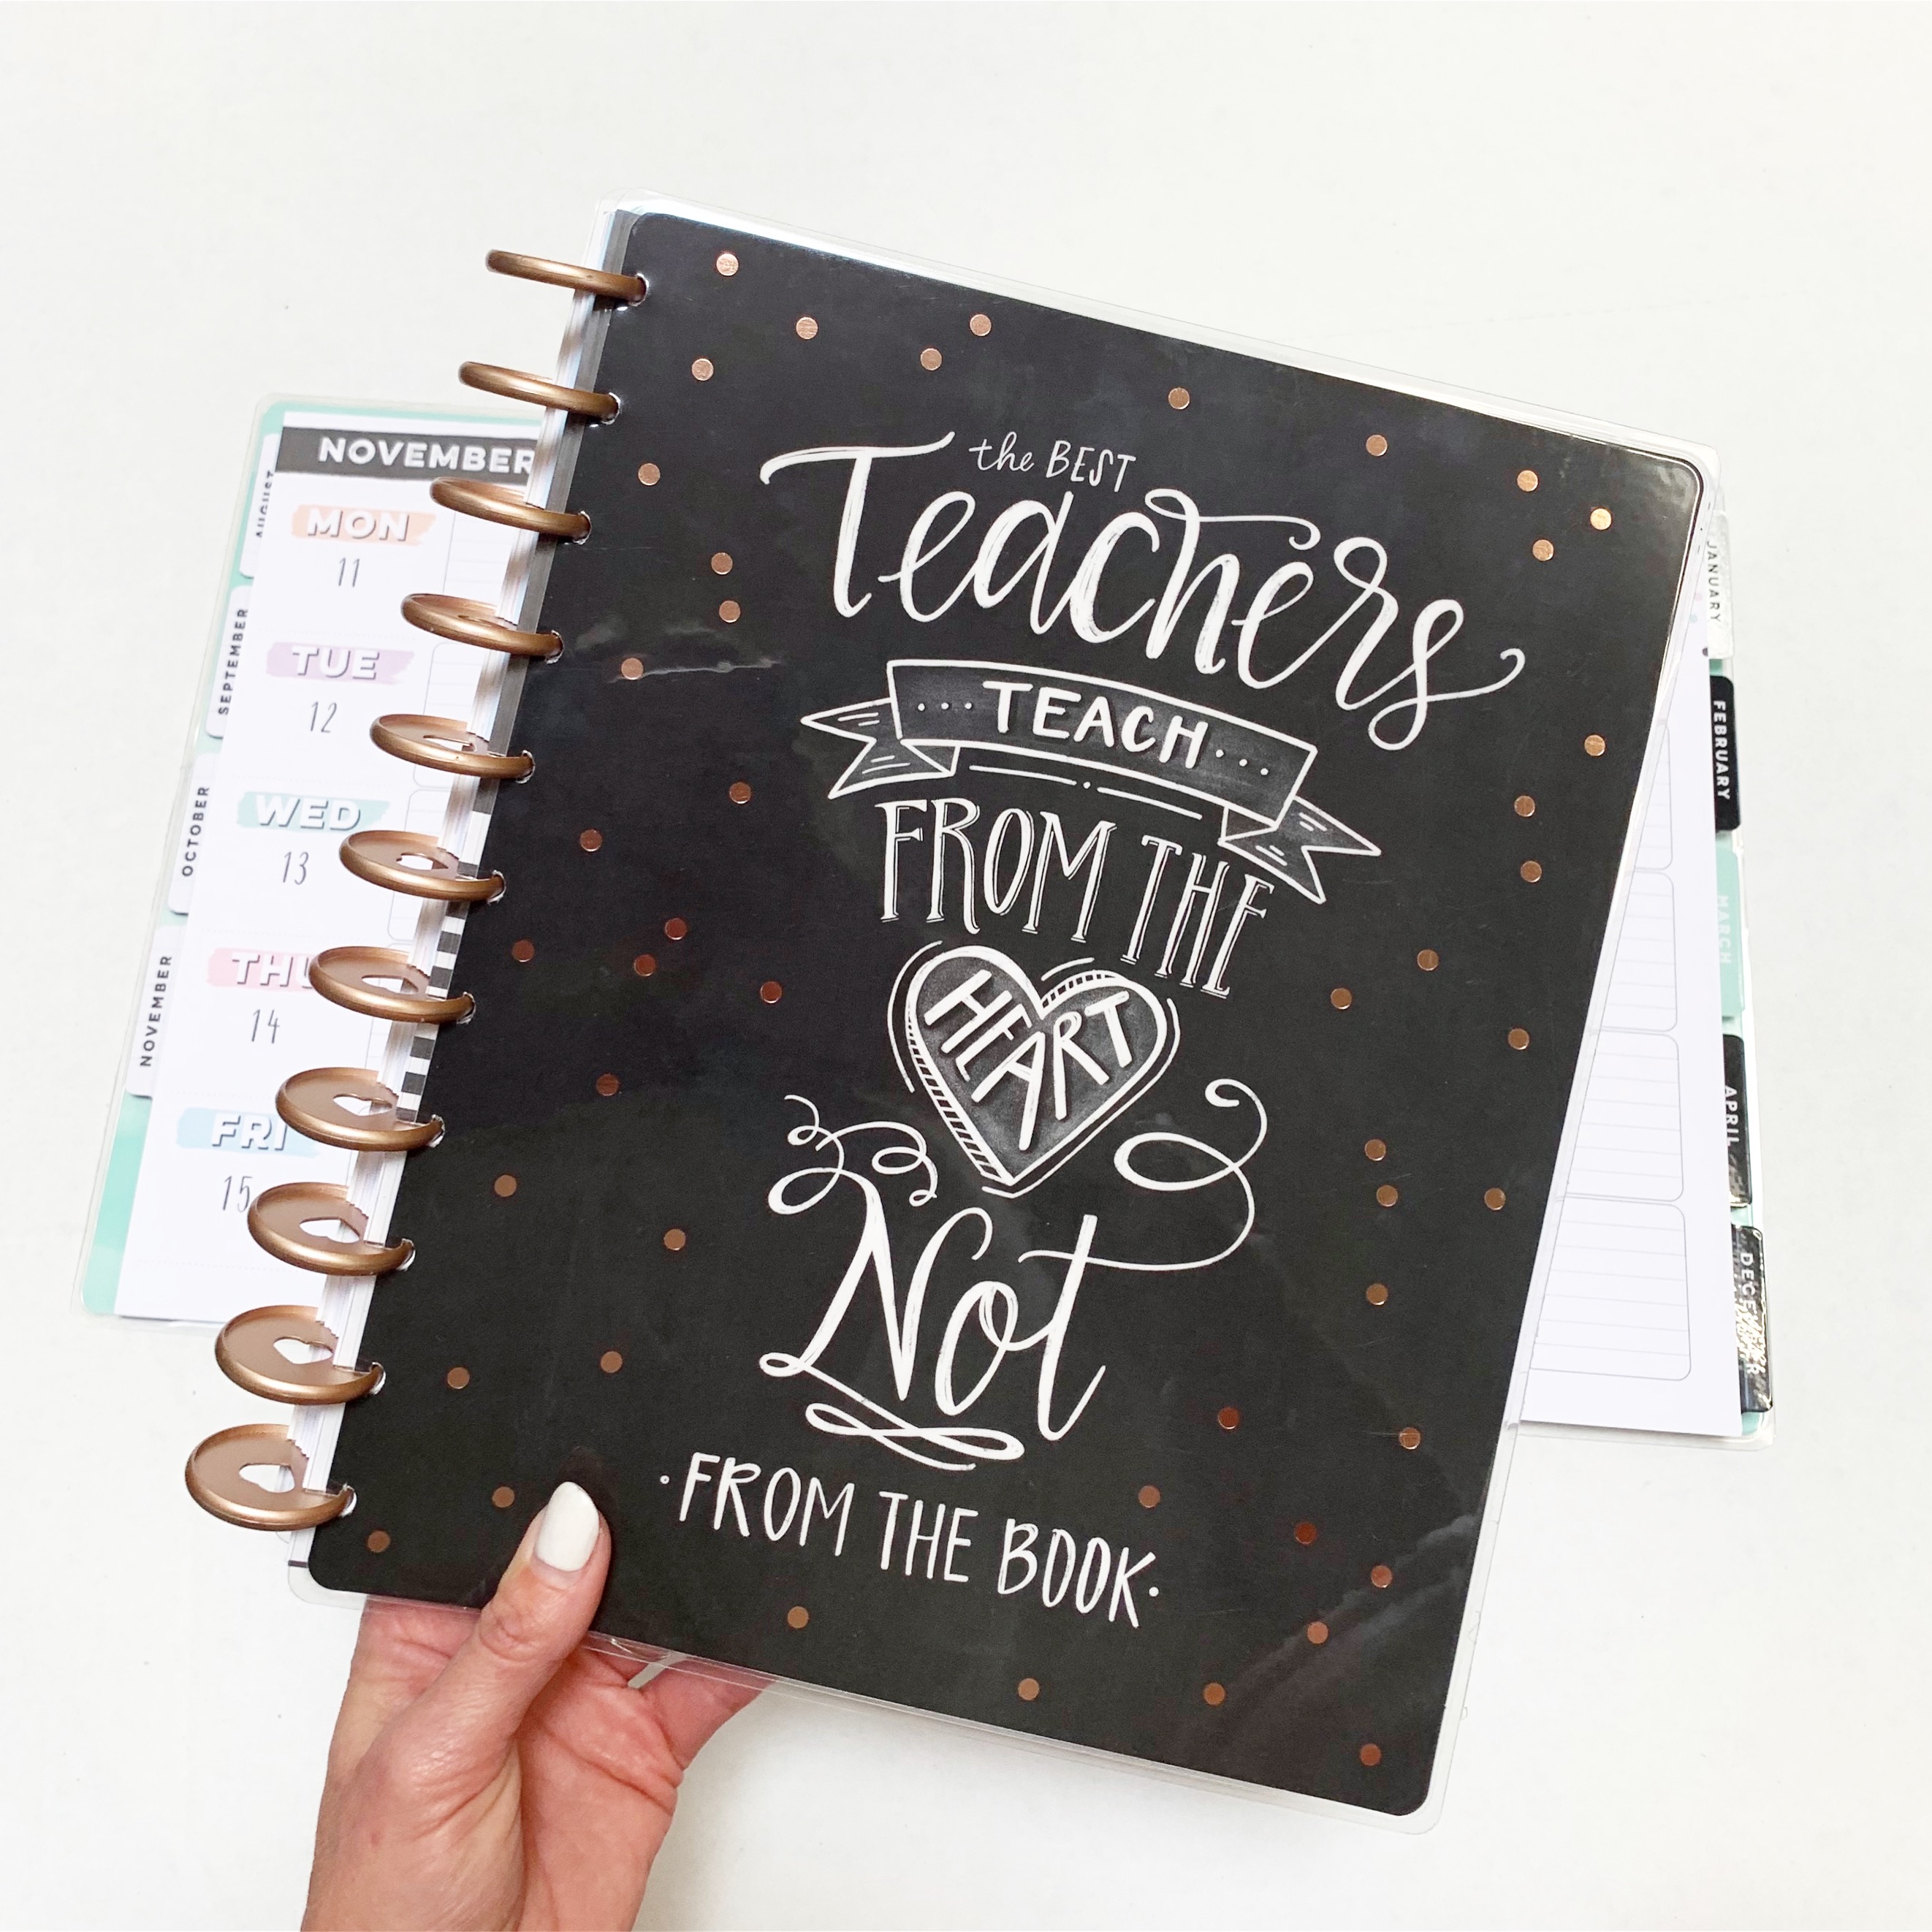 the BEST
Teachers
TEACH
FROM THE
HEART
Not
FROM THE BOOK
NOVEMBER
MON
11
TUE
12
WED
13
THU
14
FRI
15
AUGUST
SEPTEMBER
OCTOBER
NOVEMBER
JANUARY
FEBRUARY
MARCH
APRIL
DECEMBER